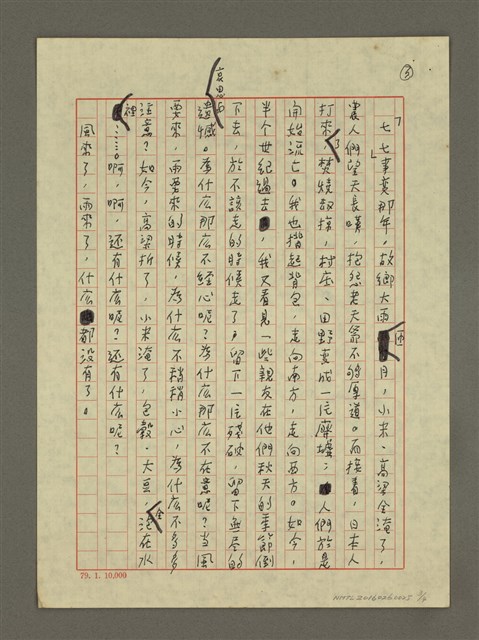 ⑤
「七七事變」那年，故鄉大雨匝月，小米、高粱全淹了，
裏人們望天長嘆，抱怨老天爺不夠厚道。而接着，日本人
打來了，焚燒殺掠，村庄、田野變成一片廢墟；人們於是
開始流亡。我也揹起背包，走向南方，走向西方。如今，
半个世紀過去，我又看見一些親友在他們秋天的季節倒
下去，於不該走的時候走了，留下一片殘破，留下無尽的
哀思与遺憾。為什么那么不經心呢？為什么那么不在意呢？當風
要來，雨要來的時候，為什么不稍稍小心，為什么不多多
注意？如今，高粱折了，小米淹了，包穀、大豆，全泡在水
裡……。啊，啊，还有什么呢？还有什么呢？
風來了，雨來了，什么都没有了。
79. 1. 10,000